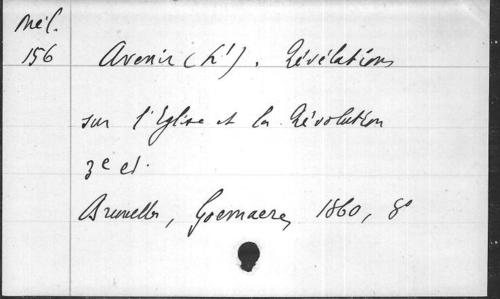 Mél.
156
Avenir (L'). Révélations
sur l'Eglise et la Révolution
3e ed.
Bruxelles, Goemaere, 1860, 8o